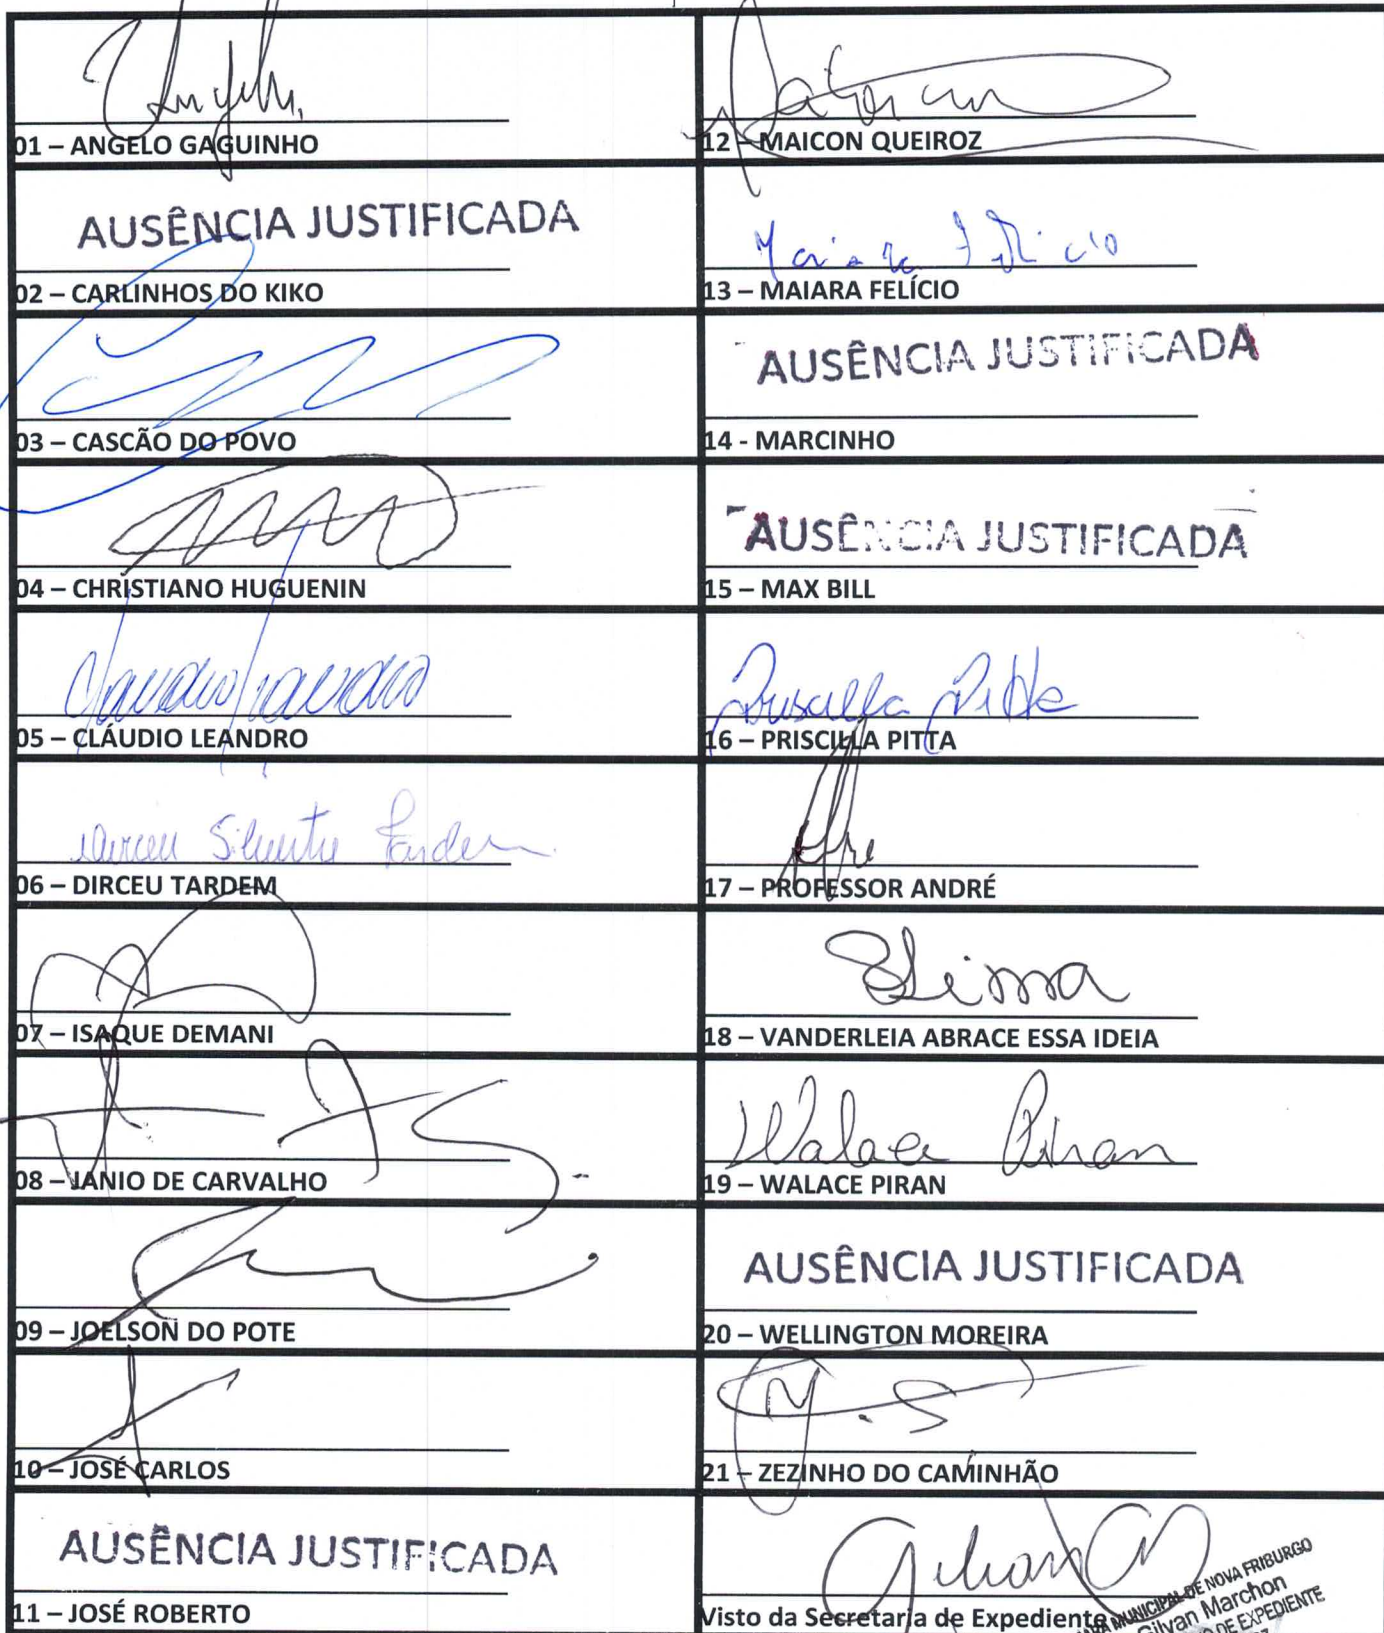 01 – ANGELO GAGUINHO
AUSÊNCIA JUSTIFICADA
02 – CARLINHOS DO KIKO
03 – CASCÃO DO POVO
04 – CHRISTIANO HUGUENIN
05 – CLÁUDIO LEANDRO
06 – DIRCEU TARDEM
07 – ISAQUE DEMANI
08 – JANIO DE CARVALHO
09 – JOELSON DO POTE
10 – JOSÉ CARLOS
AUSÊNCIA JUSTIFICADA
11 – JOSÉ ROBERTO
12 – MAICON QUEIROZ
Maiara Felício
13 – MAIARA FELÍCIO
AUSÊNCIA JUSTIFICADA
14 - MARCINHO
AUSÊNCIA JUSTIFICADA
15 – MAX BILL
Priscilla Pitta
16 – PRISCILLA PITTA
17 – PROFESSOR ANDRÉ
18 – VANDERLEIA ABRACE ESSA IDEIA
Walace Piran
19 – WALACE PIRAN
AUSÊNCIA JUSTIFICADA
20 – WELLINGTON MOREIRA
21 – ZEZINHO DO CAMINHÃO
Visto da Secretaria de Expediente
MUNICIPAL DE NOVA FRIBURGO
Gilvan Marchon
DE EXPEDIENTE